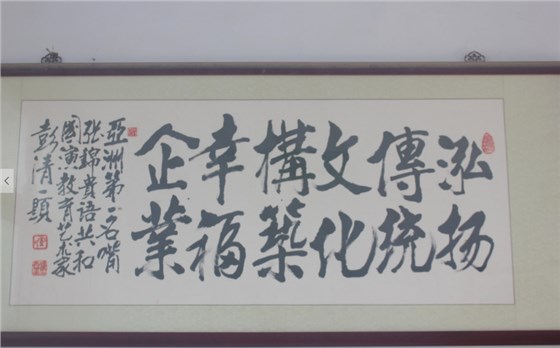 泓扬
傳统
文化
構築
幸福
企業
亞洲第一名嘴
張錦贵语共和
國演讲教育艺术家
彭清一題